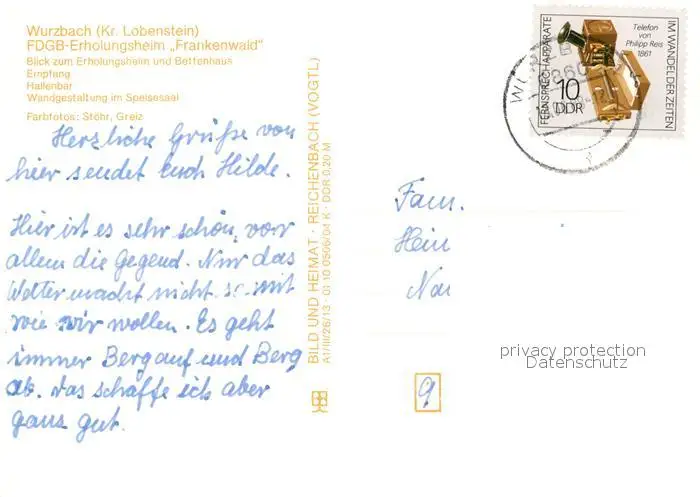 Wurzbach (Kr. Lobenstein)
FDGB-Erholungsheim „Frankenwald"
Blick zum Erholungsheim und Bettenhaus
Empfang
Hallenbar
Wandgestaltung im Speisesaal
Farbfotos: Stöhr, Greiz
Herzliche Grüße von
hier sendet Euch Hilde.
Hier ist es sehr schön, vor
allem die Gegend. Nur das
Wetter macht nicht so mit
wie wir wollen. Es geht
immer Berg auf und Berg
ab. Das schaffe ich aber
ganz gut.
BILD UND HEIMAT · REICHENBACH (VOGTL)
A1/III/26/13 · 01 10 0506/04 K · DDR 0,20 M
FERNSPRECHAPPARATE
IM WANDEL DER ZEITEN
Telefon
von
Philipp Reis
1861
10
DDR
Fam.
Hein
privacy protection
Datenschutz
9